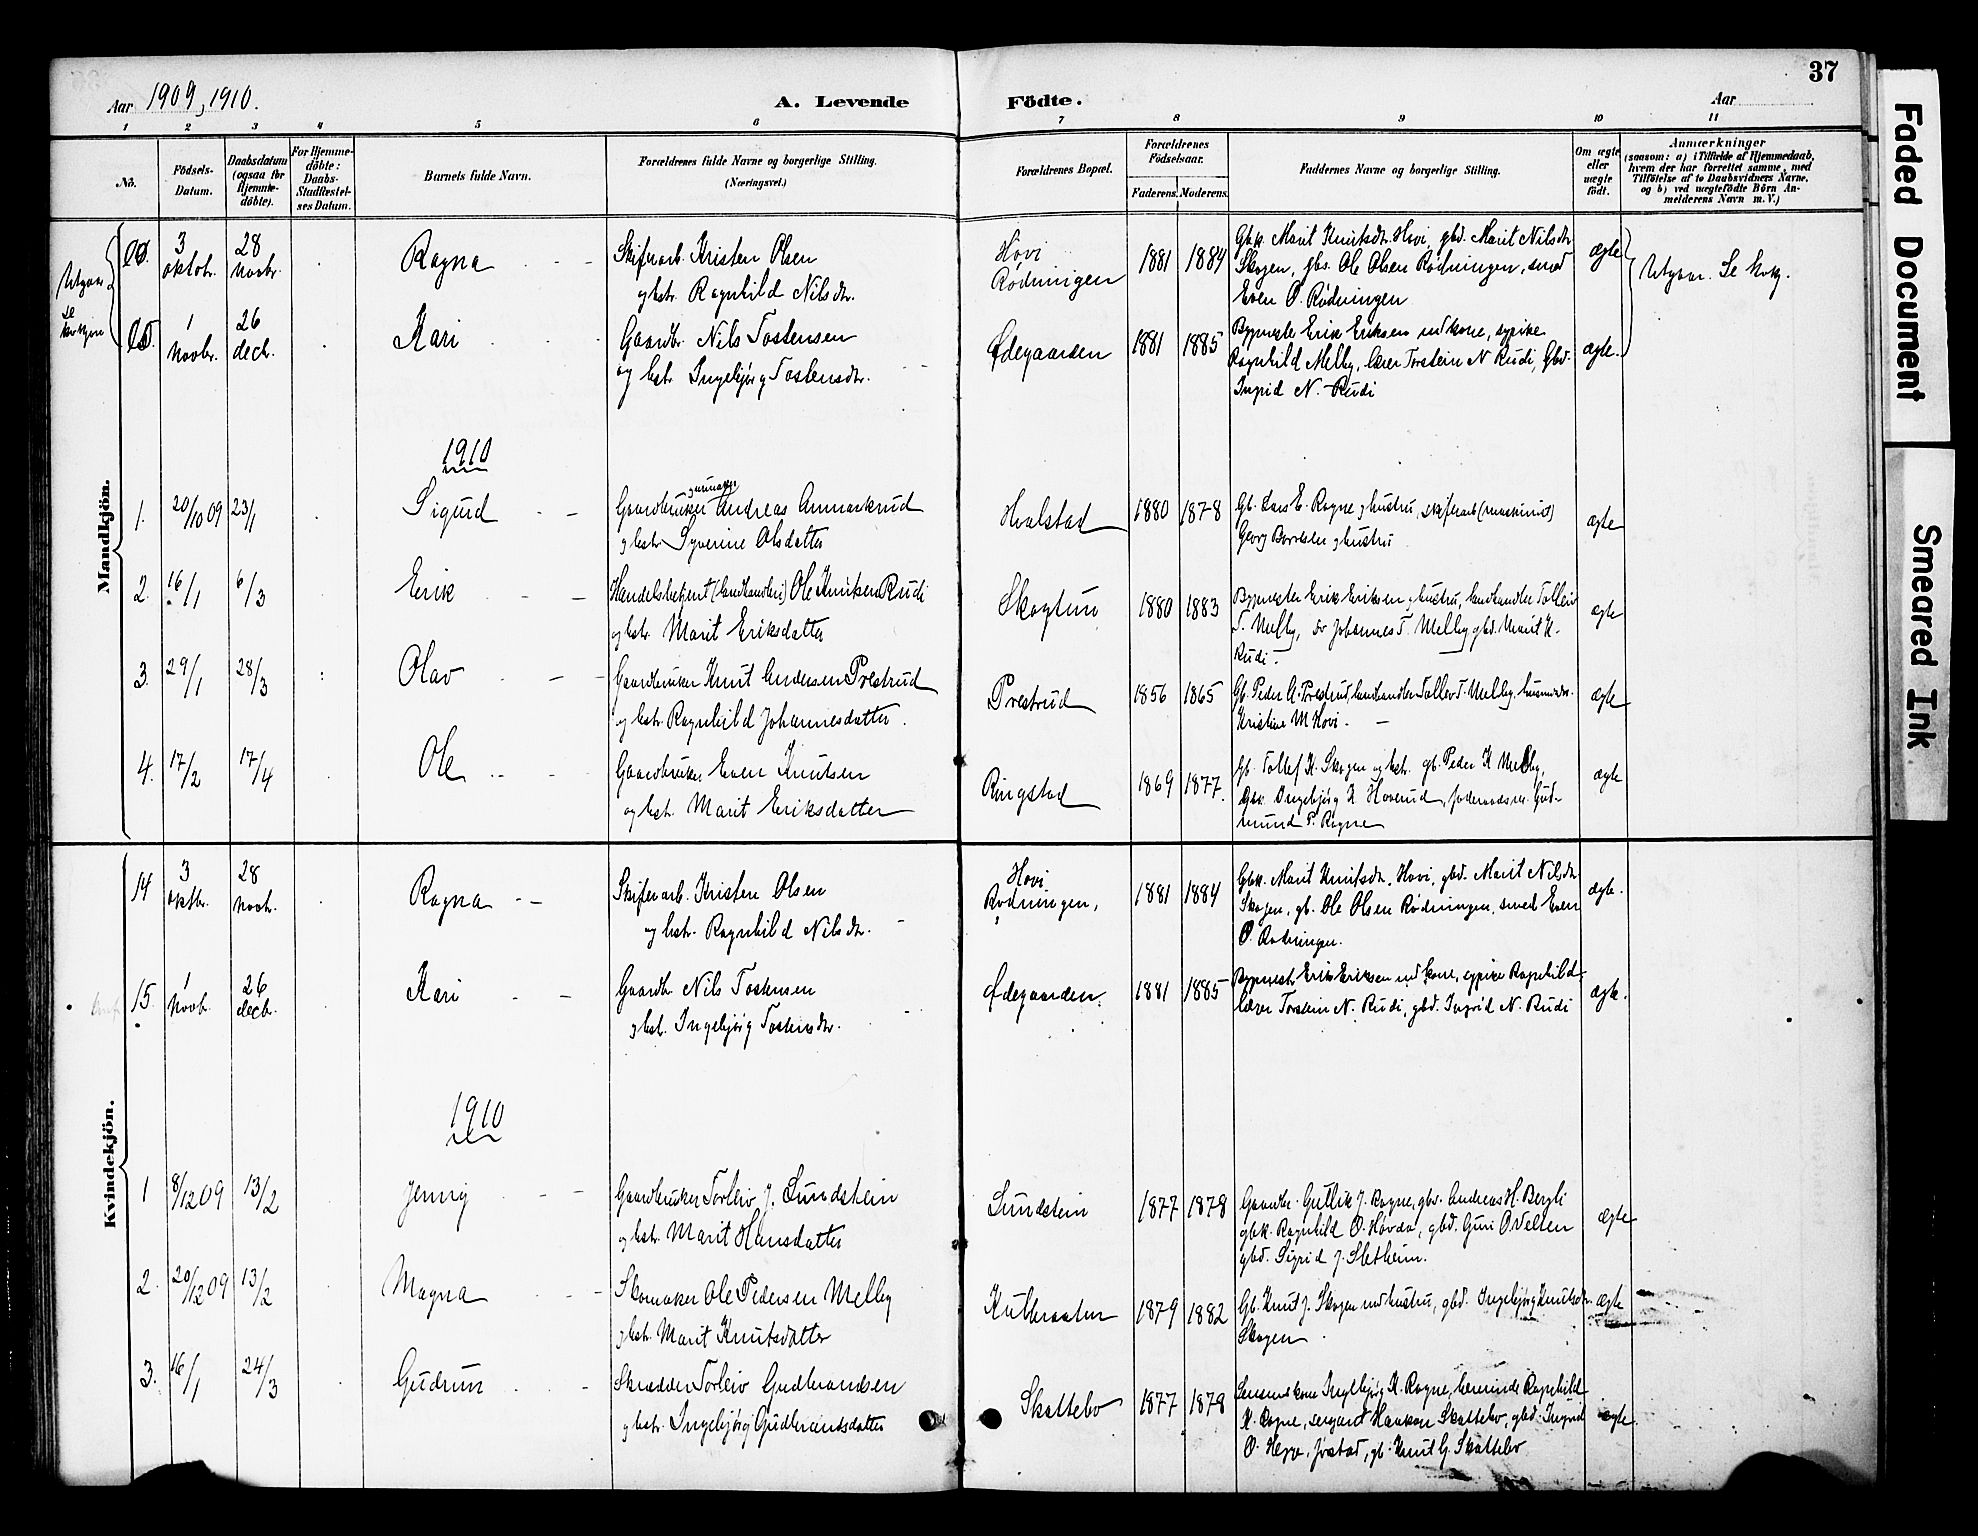 37
Aar 1909, 1910.
A. Levende Födte.
Aar
1 2 3 4 5 6 7 8 9 10 11
No.
Födsels-Datum.
Daabsdatum (ogsaa for Hjemmedöbte).
For Hjemmedöbte: Daabs-Stadfestelses Datum.
Barnets fulde Navn.
Forældrenes fulde Navne og borgerlige Stilling. (Næringsvei.)
Forældrenes Bopæl.
Forældrenes Födselsaar.
Faderens. Moderens.
Faddernes Navne og borgerlige Stilling.
Om ægte eller uægte födt.
Anmærkninger (saasom: a) i Tilfælde af Hjemmedaab, hvem der har forrettet samme, med Tilföielse af to Daabsvidners Navne, og b) ved uægtefödte Börn Anmelderens Navn m. V.)
Mandkjön.
Utgaar se kvkjøn
3 oktobr. 28 novbr. Ragna
Skiferarb. Kristen Olsen
og hstr. Ragnhild Nilsdtr.
Hovi Rødningen 1881 1884
Gbk. Marit Knutsdtr. Hovi, gbd. Marit Nilsdtr.
Skogen, gbs. Ole Olsen Rødningen, smed
Even O. Rødningen
ægte
Utgaar. Se kvkj.
1 novbr. 26 decbr. Kari
Gaardbr. Nils Tostensen
og hstr. Ingebjørg Tostensdtr.
Ødegaarden 1881 1885
Bygmester Erik Eriksen med kone, sypike
Ragnhild Melby, lærer Torstein N. Rudi, Gbd.
Ingrid N. Rudi
ægte.
1910
1. 20/10 09 23/1 Sigurd
Gaardbruker Andreas Ammerkrud
og hstr. Syverine Olsdatter
Hvalstad 1880 1878
Gb. Lars E. Rogne og hustru, skiferarb (maskinist)
Georg Borresen og hustru
ægte
2. 16/1 6/3 Erik
Handelsbetjent (landhandleri) Ole Knutsen Rudi
og hstr. Marit Eriksdatter
Skogtun 1880 1883
Bygmester Erik Eriksen og hustru, landhandler Tolleiv
T. Melby, Johannes T. Melby gbd. Marit K.
Rudi.
ægte
3. 29/1 28/3 Olav
Gaardbruker Knut Andersen Prestrud
og hstr. Ragnhild Johannesdatter.
Prestrud 1856 1865
Gb. Peder A. Prestrud, landhandler Tollev T. Melby,
Kristine M Hovi.
ægte
4. 17/2 17/4 Ole
Gaardbruker Even Knutsen
og hstr. Marit Eriksdatter
Ringstad 1869 1877.
Gb. Tollef K. Skogen og hstr. gb. Peder K Melby,
Gbk. Ingebjørg K Hoverud, føderaadsm. Gud-
mund P. Rogne
ægte
Kvindekjön.
14 3 oktbr. 28 novbr. Ragna
Skiferarb. Kristen Olsen
og hstr. Ragnhild Nilsdtr.
Hovi Rødningen, 1881 1884
Gbk. Marit Knutsdtr. Hovi, gbd. Marit Nilsdtr.
Skogen, gb. Ole Olsen Rødningen, smed Even
O. Rødningen.
ægte.
15. 1 novb. 26 decbr. Kari
Gaardbr. Nils Tostensen
og hst. Ingebjørg Tostensdtr.
Ødegaarden. 1881 1885
Bygmestr. Erik Eriksen med kone, sypike Ragnhild
lærer Torstein N. Rudi, gbd. Ingrid N. Rudi
ægte.
1910
1 8/12 09 13/2 Jenny
Gaardbruker Torleiv J. Sundstein
og hstr. Marit Hansdatter
Sundstein 1877 1878
Gaardbr. Gutlik J. Rogne, gbs. Andreas H. Bergli
gbk. Ragnhild O. Hovda, gbd. Guri O Velten
gbd. Sigrid J. Sletheim.
ægte
2. 20/12 09 13/2 Magna
Skomaker Ole Pedersen Melby
og hstr. Marit Knutsdatter
Kutbraaten 1879 1882
Gb. Knut J. Skogen med hustru, gbd. Ingebjørg Knutsdtr.
Skogen
ægte
3. 16/1 24/3 Gudrun
Skrædder Torleiv Gudbrandsen
og hstr. Ingebjørg Gudbrandsdatter
Skattebo 1877 1878
Lensmskone Ingebjørg K. Rogne, lærerinde Ragnhild
K. Rogne, sergeant Haakon Skattebo, gbd. Ingrid
O. Hegge, Jostad, gb. Knut G. Skattebo
ægte
Faded Document
Smeared Ink